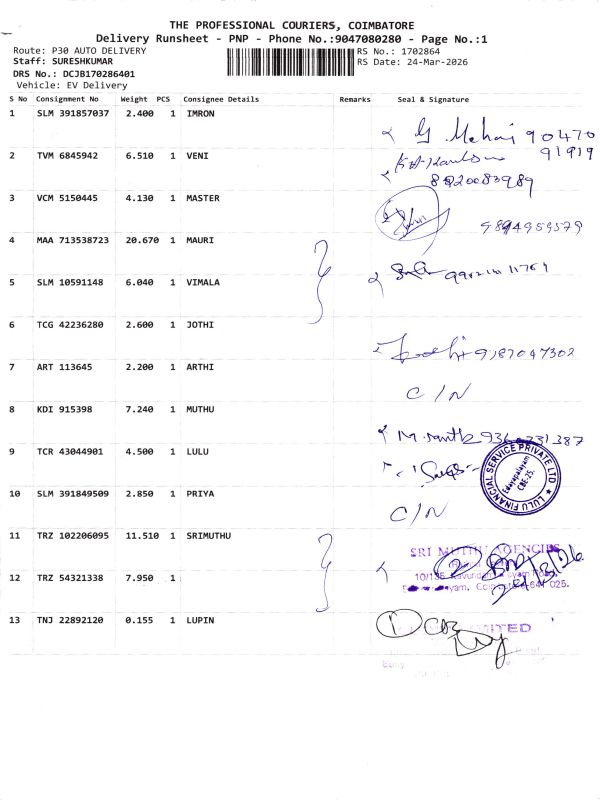 THE PROFESSIONAL COURIERS, COIMBATORE
Delivery Runsheet - PNP - Phone No.:9047080280 - Page No.:1
Route: P30 AUTO DELIVERY
Staff: SURESHKUMAR
DRS No.: DCJB170286401
Vehicle: EV Delivery
RS No.: 1702864
RS Date: 24-Mar-2026
S No Consignment No Weight PCS Consignee Details Remarks Seal & Signature
1 SLM 391857037 2.400 1 IMRON 90470
91919
2 TVM 6845942 6.510 1 VENI
3 VCM 5150445 4.130 1 MASTER
4 MAA 713538723 20.670 1 MAURI
5 SLM 10591148 6.040 1 VIMALA
6 TCG 42236280 2.600 1 JOTHI 9187047302
7 ART 113645 2.200 1 ARTHI C/N
8 KDI 915398 7.240 1 MUTHU
9 TCR 43044901 4.500 1 LULU
LULU FINANCIAL SERVICE PRIVATE LTD
Edayapalayam
CBE-25.
10 SLM 391849509 2.850 1 PRIYA C/N
11 TRZ 102206095 11.510 1 SRIMUTHU
SRI MUTHU AGENCIES
12 TRZ 54321338 7.950 1
13 TNJ 22892120 0.155 1 LUPIN